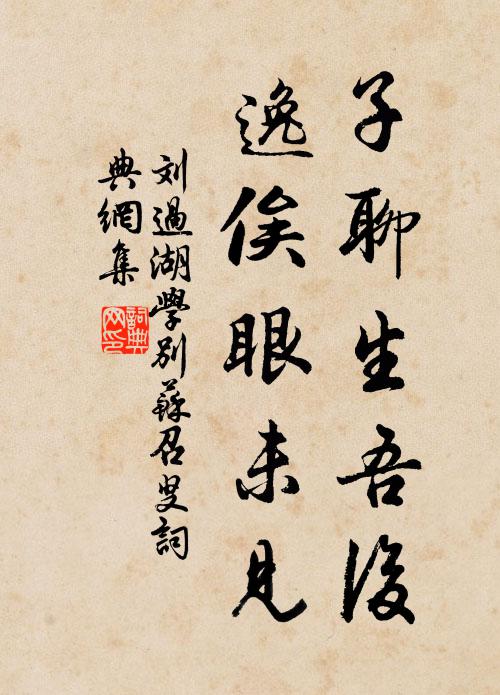 子聊生吾後
逸俟眼未見
刘過湖學别蘇召叟詞
典網集
詞典网印